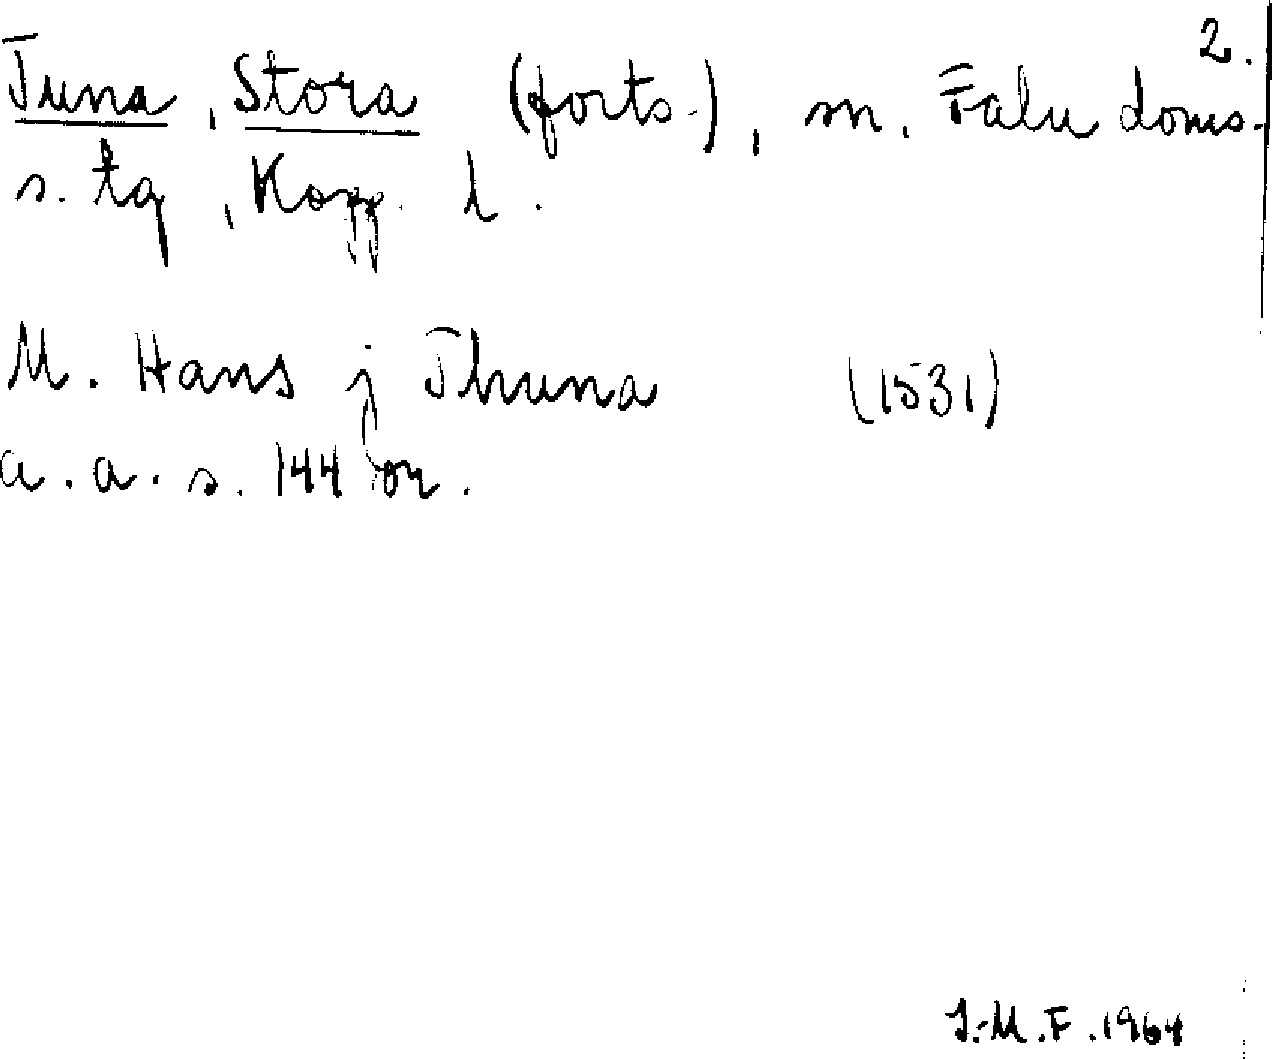 2.
Tuna, Stora (forts.), sn. Falu doms-
s. tg, Kopp. l.
M. Hans j Thuna (1531)
a. a. s. 144 or.
I.-M.F. 1964